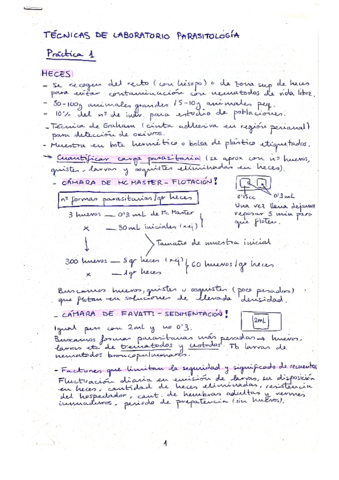 TÉCNICAS DE LABORATORIO PARASITOLOGÍA
Práctica 1
HECES:
- Se recogen del recto (con hisopo) o de zona sup de heces
para evitar contaminación con nematodos de vida libre.
- 50-100g animales grandes / 5-10g animales peq.
- 10% del nº de indv. para estudio de poblaciones.
- Técnica de Graham (cinta adhesiva en región perianal)
para detección de oxiuros.
- Muestra en bote hermético o bolsa de plástico etiquetado.
→ Cuantificar carga parasitaria (se aprox con nº huevos,
quistes, larvas y ooquistes eliminados en heces).
- CÁMARA DE Mc MASTER - FLOTACIÓN!
nº formas parasitarias/gr heces
3 huevos — 0'3 ml de Mc Master
x — 30ml iniciales (xej)
Tamaño de muestra inicial
300 huevos — 5 gr heces (xej)
x — 1 gr heces
60 huevos/gr heces
0'15cc 0'3ml
Una vez llena dejamos
reposar 5 min para
que floten.
Buscamos huevos, quistes u ooquistes (poco pesados)
que flotan en soluciones de elevada densidad.
- CÁMARA DE FAVATTI - SEDIMENTACIÓN!
Igual pero con 2ml y no 0'3.
2mL
Buscamos formas parasitarias más pesadas → huevos,
larvas etc de trematodos y cestodos. Tb larvas de
nematodos broncopulmonares.
- Factores que limitan la seguridad y significado de recuentos
Fluctuación diaria en emisión de larvas, su disposición
en heces, cantidad de heces eliminadas, resistencia
del hospedador, cant. de hembras adultas y vermes
inmaduros, periodo de prepatencia (sin huevos).
1